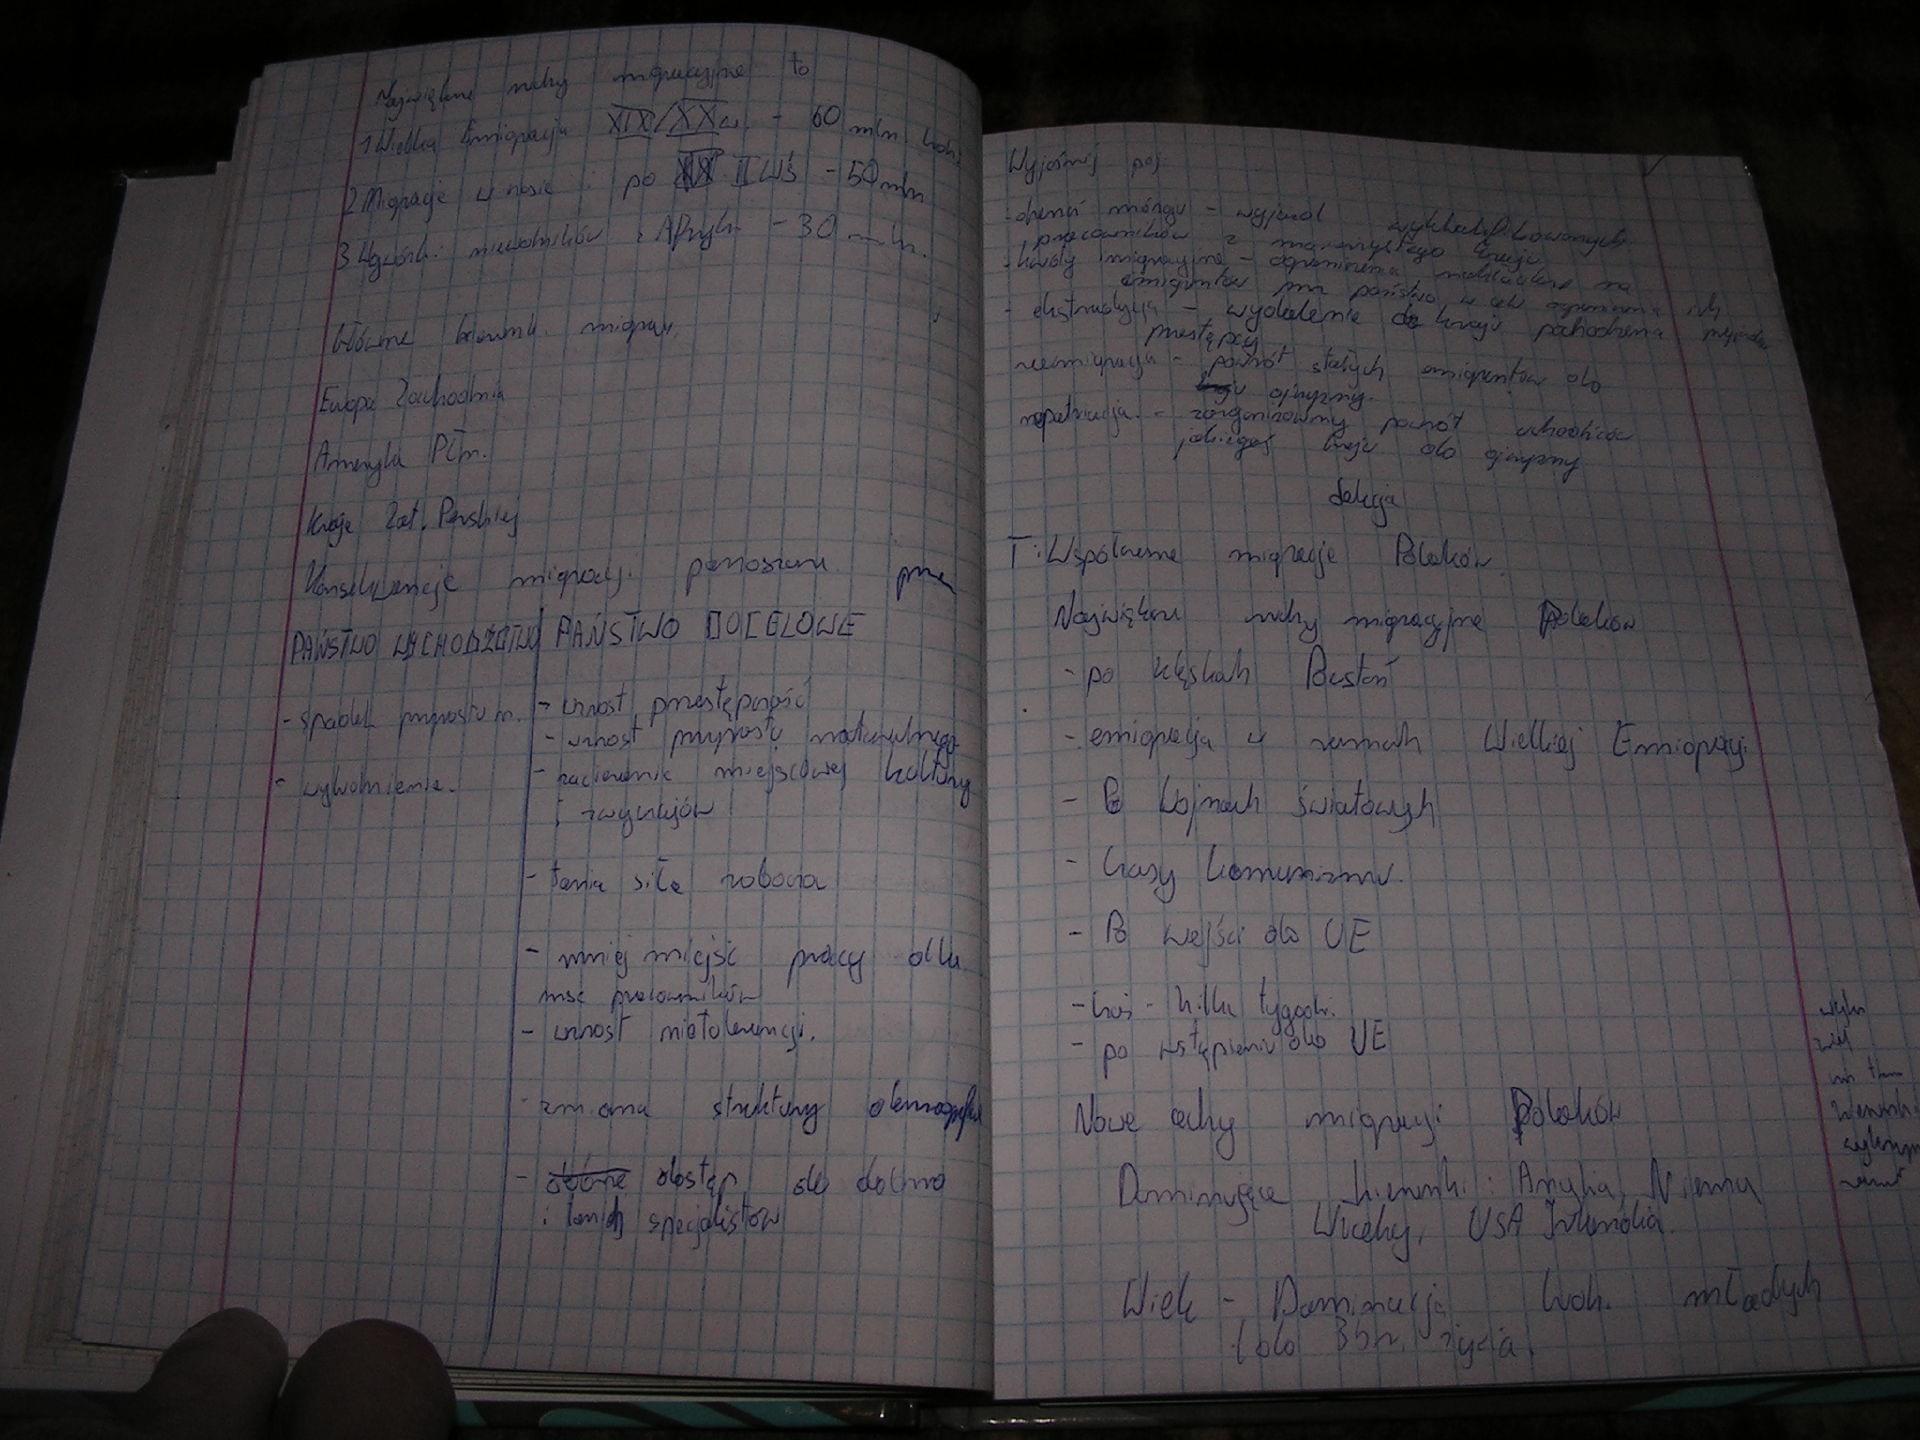 Największe ruchy migracyjne to
1 Wielka Emigracja XIX/XX w. - 60 mln ludn.
2 Migracje w : po II WŚ - 50 mln
3 Wywózki niewolników z Afryki - 30 mln.
Główne kierunk. migrac.
Europa Zachodnia
Ameryka Płn.
Kraje Zat. Perskiej
Konsekwencje migracji ponoszone przez
PAŃSTWO WYCHODŹCTWA PAŃSTWO DOCELOWE
- spadek przyrostu n. - wzrost przestępczości
- wzrost przyrostu naturalnego
- wyludnienie. - zacieranie miejscowej kultury
i zwyczajów
- tania siła robocza
- mniej miejsc pracy dla
msc pracowników
- wzrost nietolerancji.
- zmiana struktury demograficz
- dostęp do dobra
i tanich specjalistów
Wyjaśnij poj
- drenaż mózgu - wyjazd wykwalifikowanych
pracowników z macierzystego kraju
- kwoty migracyjne - ograniczenia nakładane na
emigrantów prz państwo, w celu ograniczenia ich
- ekstradycja - wydalenie do kraju pochodzenia
przestępcy
reemigracja - powrót stałych emigrantów do
ojczyzny.
repatriacja. - zorganizowany powrót uchodźców
jakiegoś kraju do ojczyzny
Lekcja
T: Współczesne migracje Polaków.
Największe ruchy migracyjne Polaków
- po klęskach Powstań
- emigracja w ramach Wielkiej Emigracji
- Po Wojnach światowych
- Czasy komunizmu.
- Po wejści do UE
- kilka tygodn.
- po wstąpieniu do UE
Nowe cechy migracji Polaków
Dominujące kierunki: Anglia, Niemcy
Włochy, USA Irlandia.
Wiek - Dominacja ludn. młodych
(do 35 r. życia.